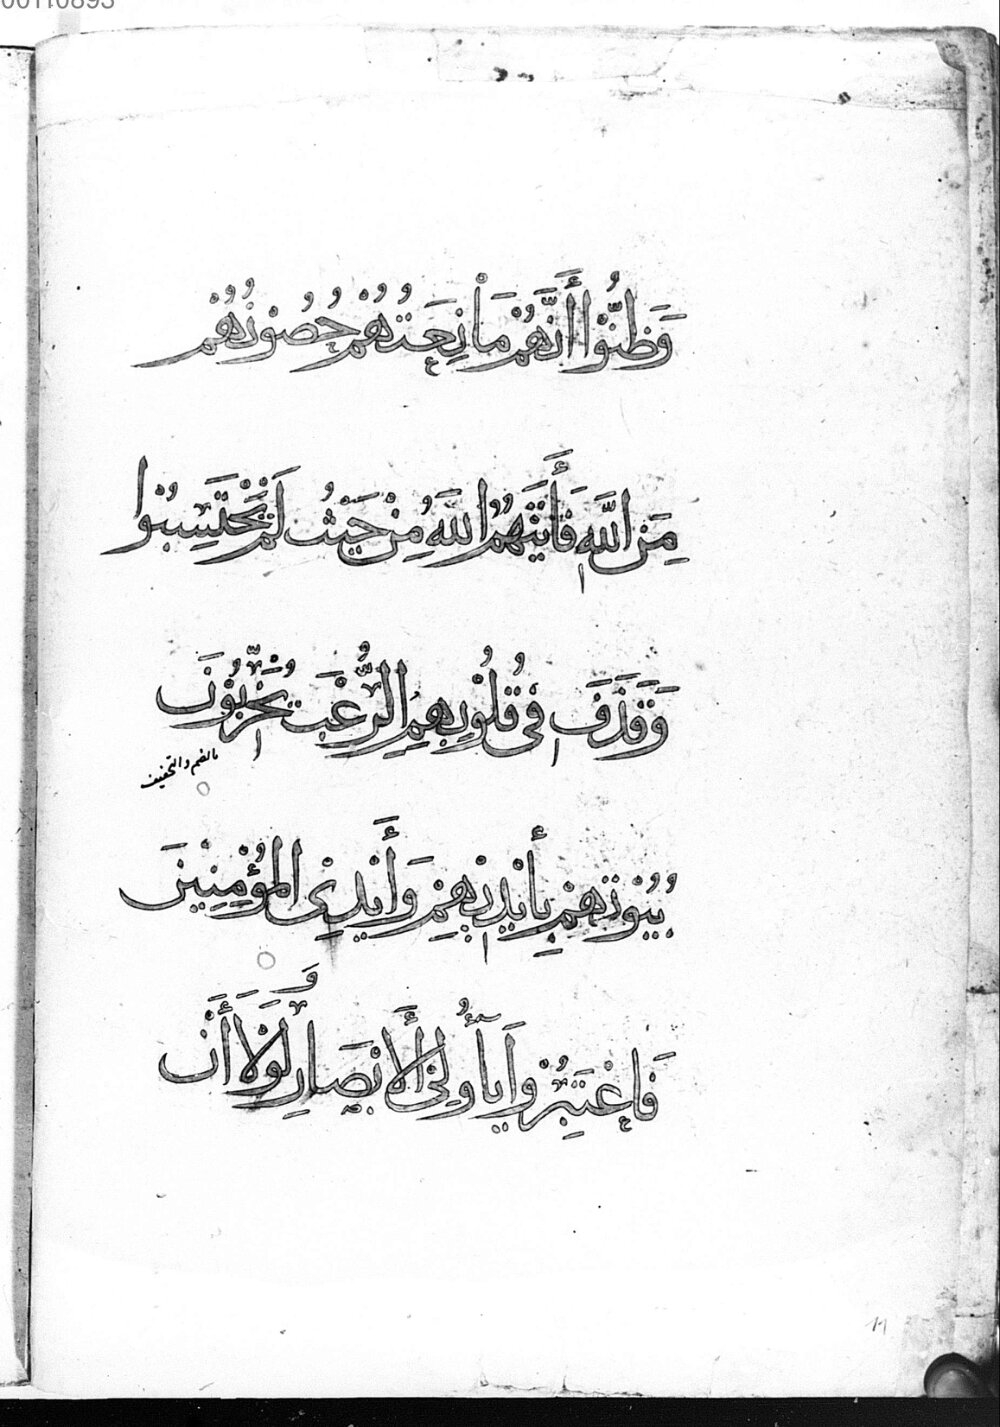 وَظَنُّوْا أَنَّهُمْ مَانِعَتُهُمْ حُصُوْنُهُمْ
مِنَ اللَّهِ فَأَتَيٰهُمُ اللَّهُ مِنْ حَيْثُ لَمْ يَحْتَسِبُوْا
وَقَذَفَ فِى قُلُوْبِهِمِ الرُّعْبَ يُخَرِّبُوْنَ
بالضم والتخفيف
بُيُوْتَهُمْ بِأَيْدِيْهِمْ وَأَيْدِىْ الْمُؤْمِنِيْنَ
فَاعْتَبِرُوْا يَآأُولِى الْأَبْصَارِ وَلَوْلَا أَنْ